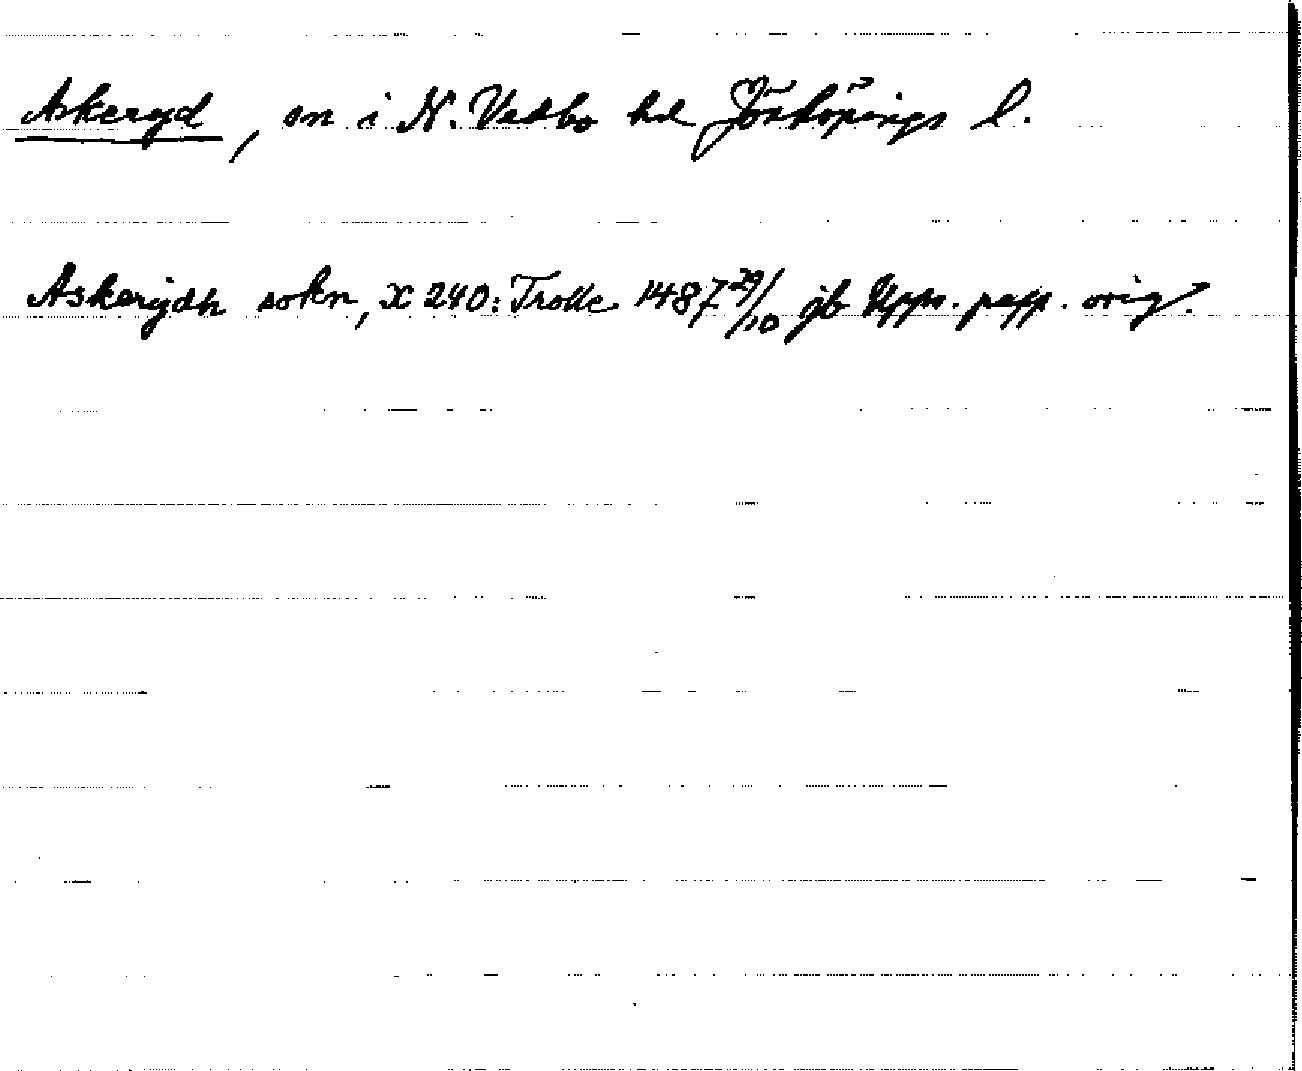 Askeryd, sn i N. Vedbo hd Jönköpings l.
Askerydh sokn, X 240: Trolle 1487 29/10 jb Upps. papp. orig.